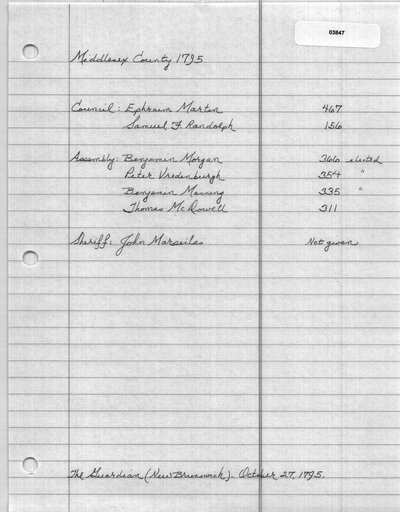 03847
Middlesex County 1795
Council: Ephraim Martin 467
Samuel F. Randolph 156
Assembly: Benjamin Morgan 366 elected
Peter Vredenburgh 354 "
Benjamin Manning 335 "
Thomas McDowell 311
Sheriff: John Marseiles Not given
The Guardian (New Brunswick). October 27, 1795.